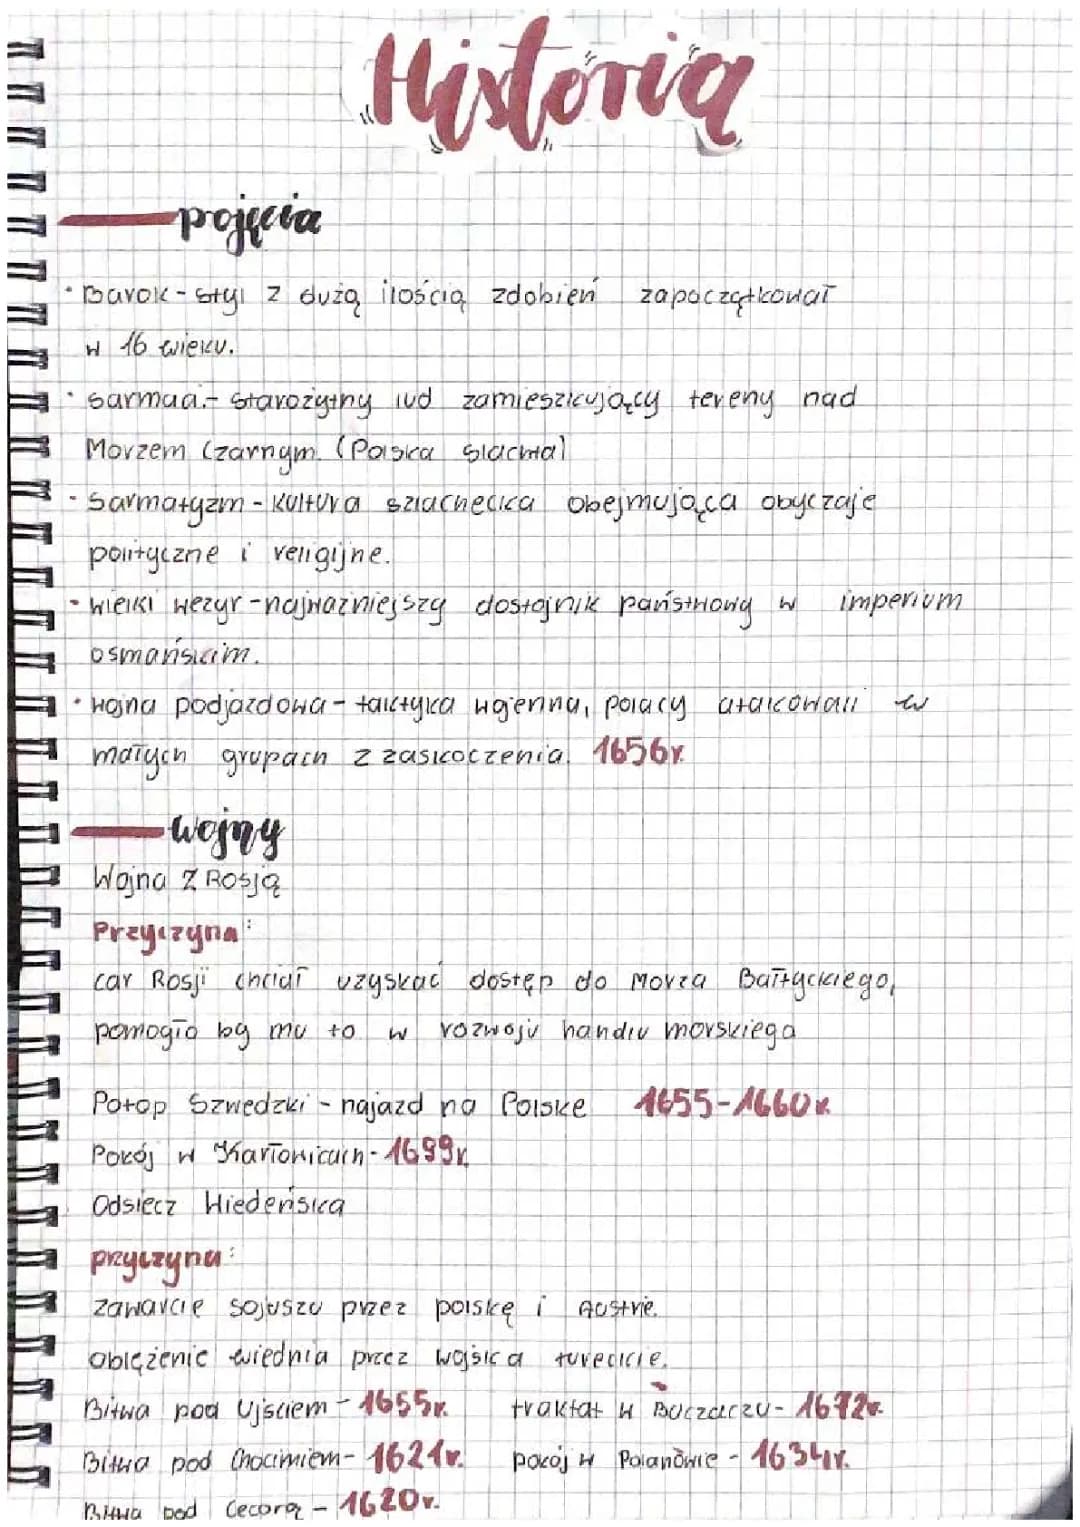 Historia
pojęcia
• Barok - styl z dużą ilością zdobień zapoczątkował
w 16 wieku.
• sarmaci - starożytny lud zamieszkujący tereny nad
Morzem Czarnym. (Polska slachta)
• Sarmatyzm - kultura szlachecka obejmująca obyczaje
polityczne i religijne.
• wielki wezyr - najważniejszy dostojnik państwowy w imperium
osmańskim.
• wojna podjazdowa - taktyka wojenna, polacy atakowali w
małych grupach z zaskoczenia. 1656r.
wojny
Wojna z Rosją
Przyczyna:
car Rosji chciał uzyskać dostęp do Morza Bałtyckiego,
pomogło by mu to w rozwoju handlu morskiego
Potop Szwedzki - najazd na Polske 1655-1660r.
Pokój w Karłowicach - 1699r.
Odsiecz Wiedeńska
przyczyna:
zawarcie sojuszu przez polskę i Austrie.
oblężenie wiednia przez wojska tureckie.
Bitwa pod Ujściem - 1655r. traktat w Buczaczu - 1672r.
Bitwa pod Chocimiem - 1621r. pokój w Polanowie - 1634r.
Bitwa pod Cecorą - 1620r.